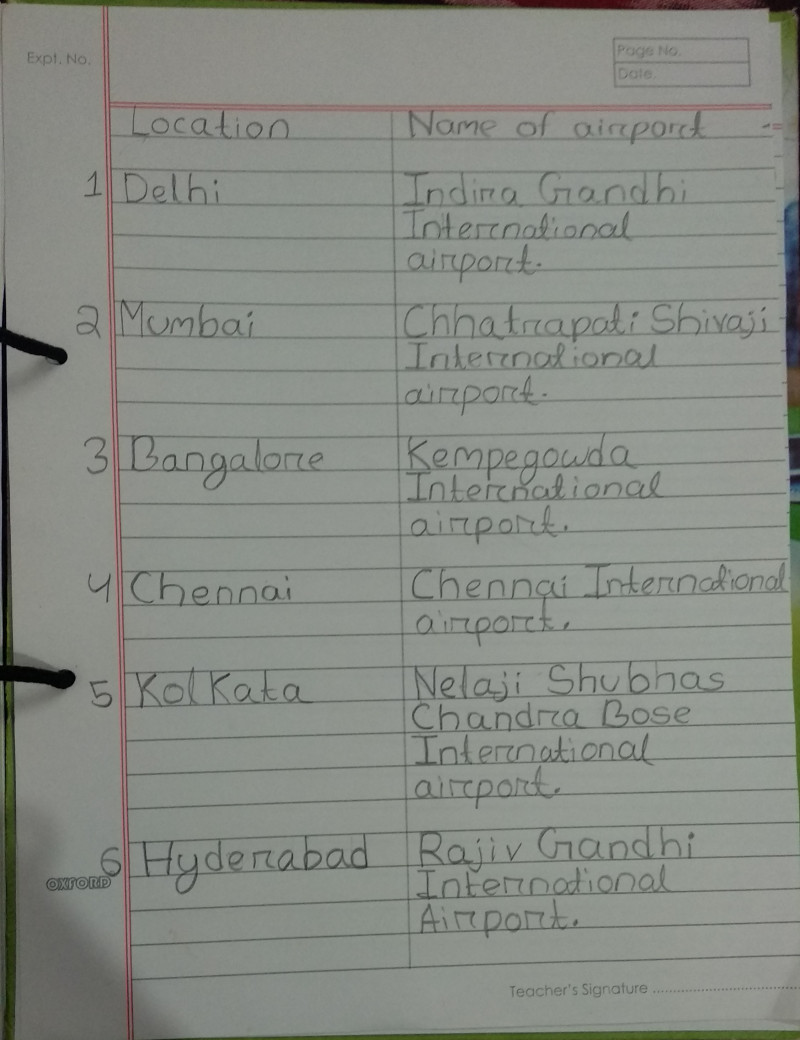 Expt. No.
Page No.
Date.
Location Name of airport
1 Delhi Indira Gandhi
International
airport.
2 Mumbai Chhatrapati Shivaji
International
airport.
3 Bangalore Kempegowda
International
airport.
4 Chennai Chennai International
airport.
5 Kolkata Netaji Shubhas
Chandra Bose
International
airport.
6 Hyderabad Rajiv Gandhi
International
Airport.
OXFORD
Teacher's Signature